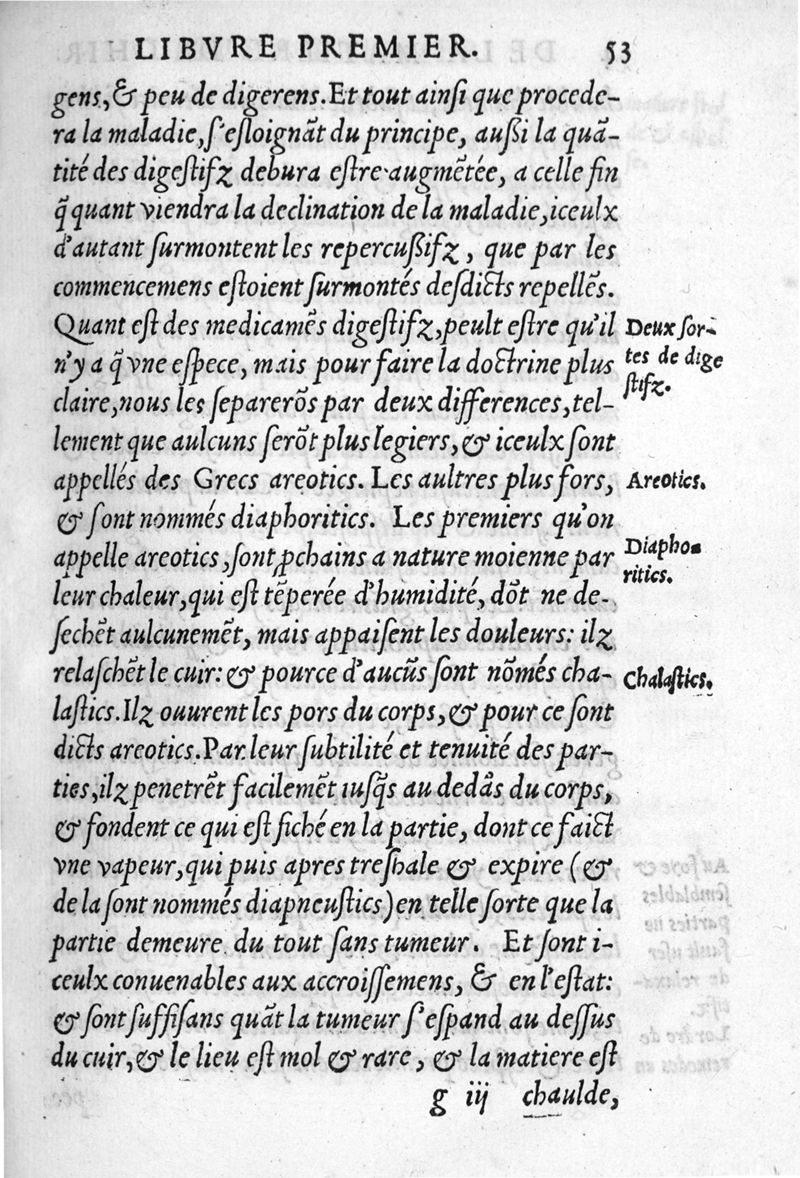 LIBVRE PREMIER. 53
gens, & peu de digerens. Et tout ainſi que procede-
ra la maladie, ſ'eſloignãt du principe, außi la quã-
tité des digeſtifz debura eſtre augmẽtée, a celle fin
q̃ quant viendra la declination de la maladie, iceulx
d'autant ſurmontent les repercußifz, que par les
commencemens eſtoient ſurmontés deſdicts repellẽs.
Quant eſt des medicamẽs digeſtifz, peult eſtre qu'il
n'y a q̃ vne eſpece, mais pour faire la doctrine plus
claire, nous les ſeparerõs par deux differences, tel-
lement que aulcuns ſerõt plus legiers, & iceulx ſont
appellés des Grecs areotics. Les aultres plus fors,
& ſont nommés diaphoritics. Les premiers qu'on
appelle areotics, ſont ꝓchains a nature moienne par
leur chaleur, qui eſt tẽperée d'humidité, dõt ne de-
ſechẽt aulcunemẽt, mais appaiſent les douleurs: ilz
relaſchẽt le cuir: & pource d'aucũs ſont nõmés cha-
laſtics. Ilz ouurent les pors du corps, & pour ce ſont
dicts areotics. Par leur ſubtilité et tenuité des par-
ties, ilz penetrẽt facilemẽt iuſq̃s au dedãs du corps,
& fondent ce qui eſt fiché en la partie, dont ce faict
vne vapeur, qui puis apres treſhale & expire (&
de la ſont nommés diapneuſtics) en telle ſorte que la
partie demeure du tout ſans tumeur. Et ſont i-
ceulx conuenables aux accroiſſemens, & en l'eſtat:
& ſont ſuffiſans quãt la tumeur ſ'eſpand au deſſus
du cuir, & le lieu eſt mol & rare, & la matiere eſt
g iij chaulde,
Deux ſor-
tes de dige
ſtifz.
Areotics.
Diapho-
ritics.
Chalaſtics.